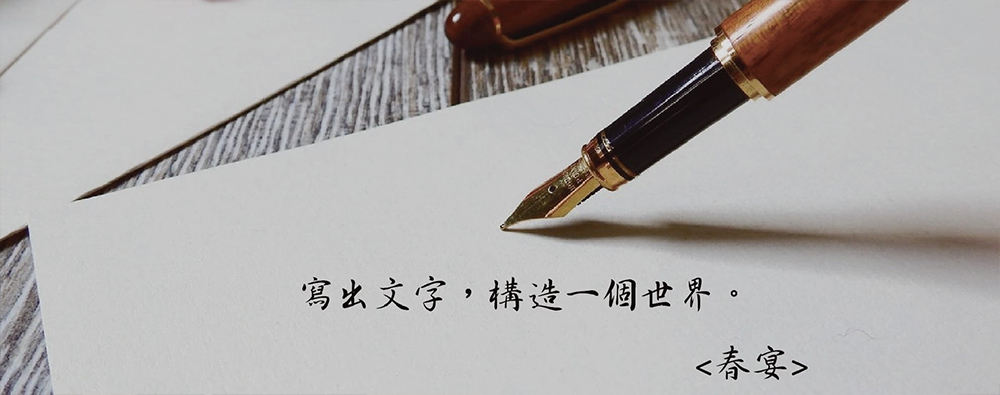 寫出文字，構造一個世界。
<春宴>